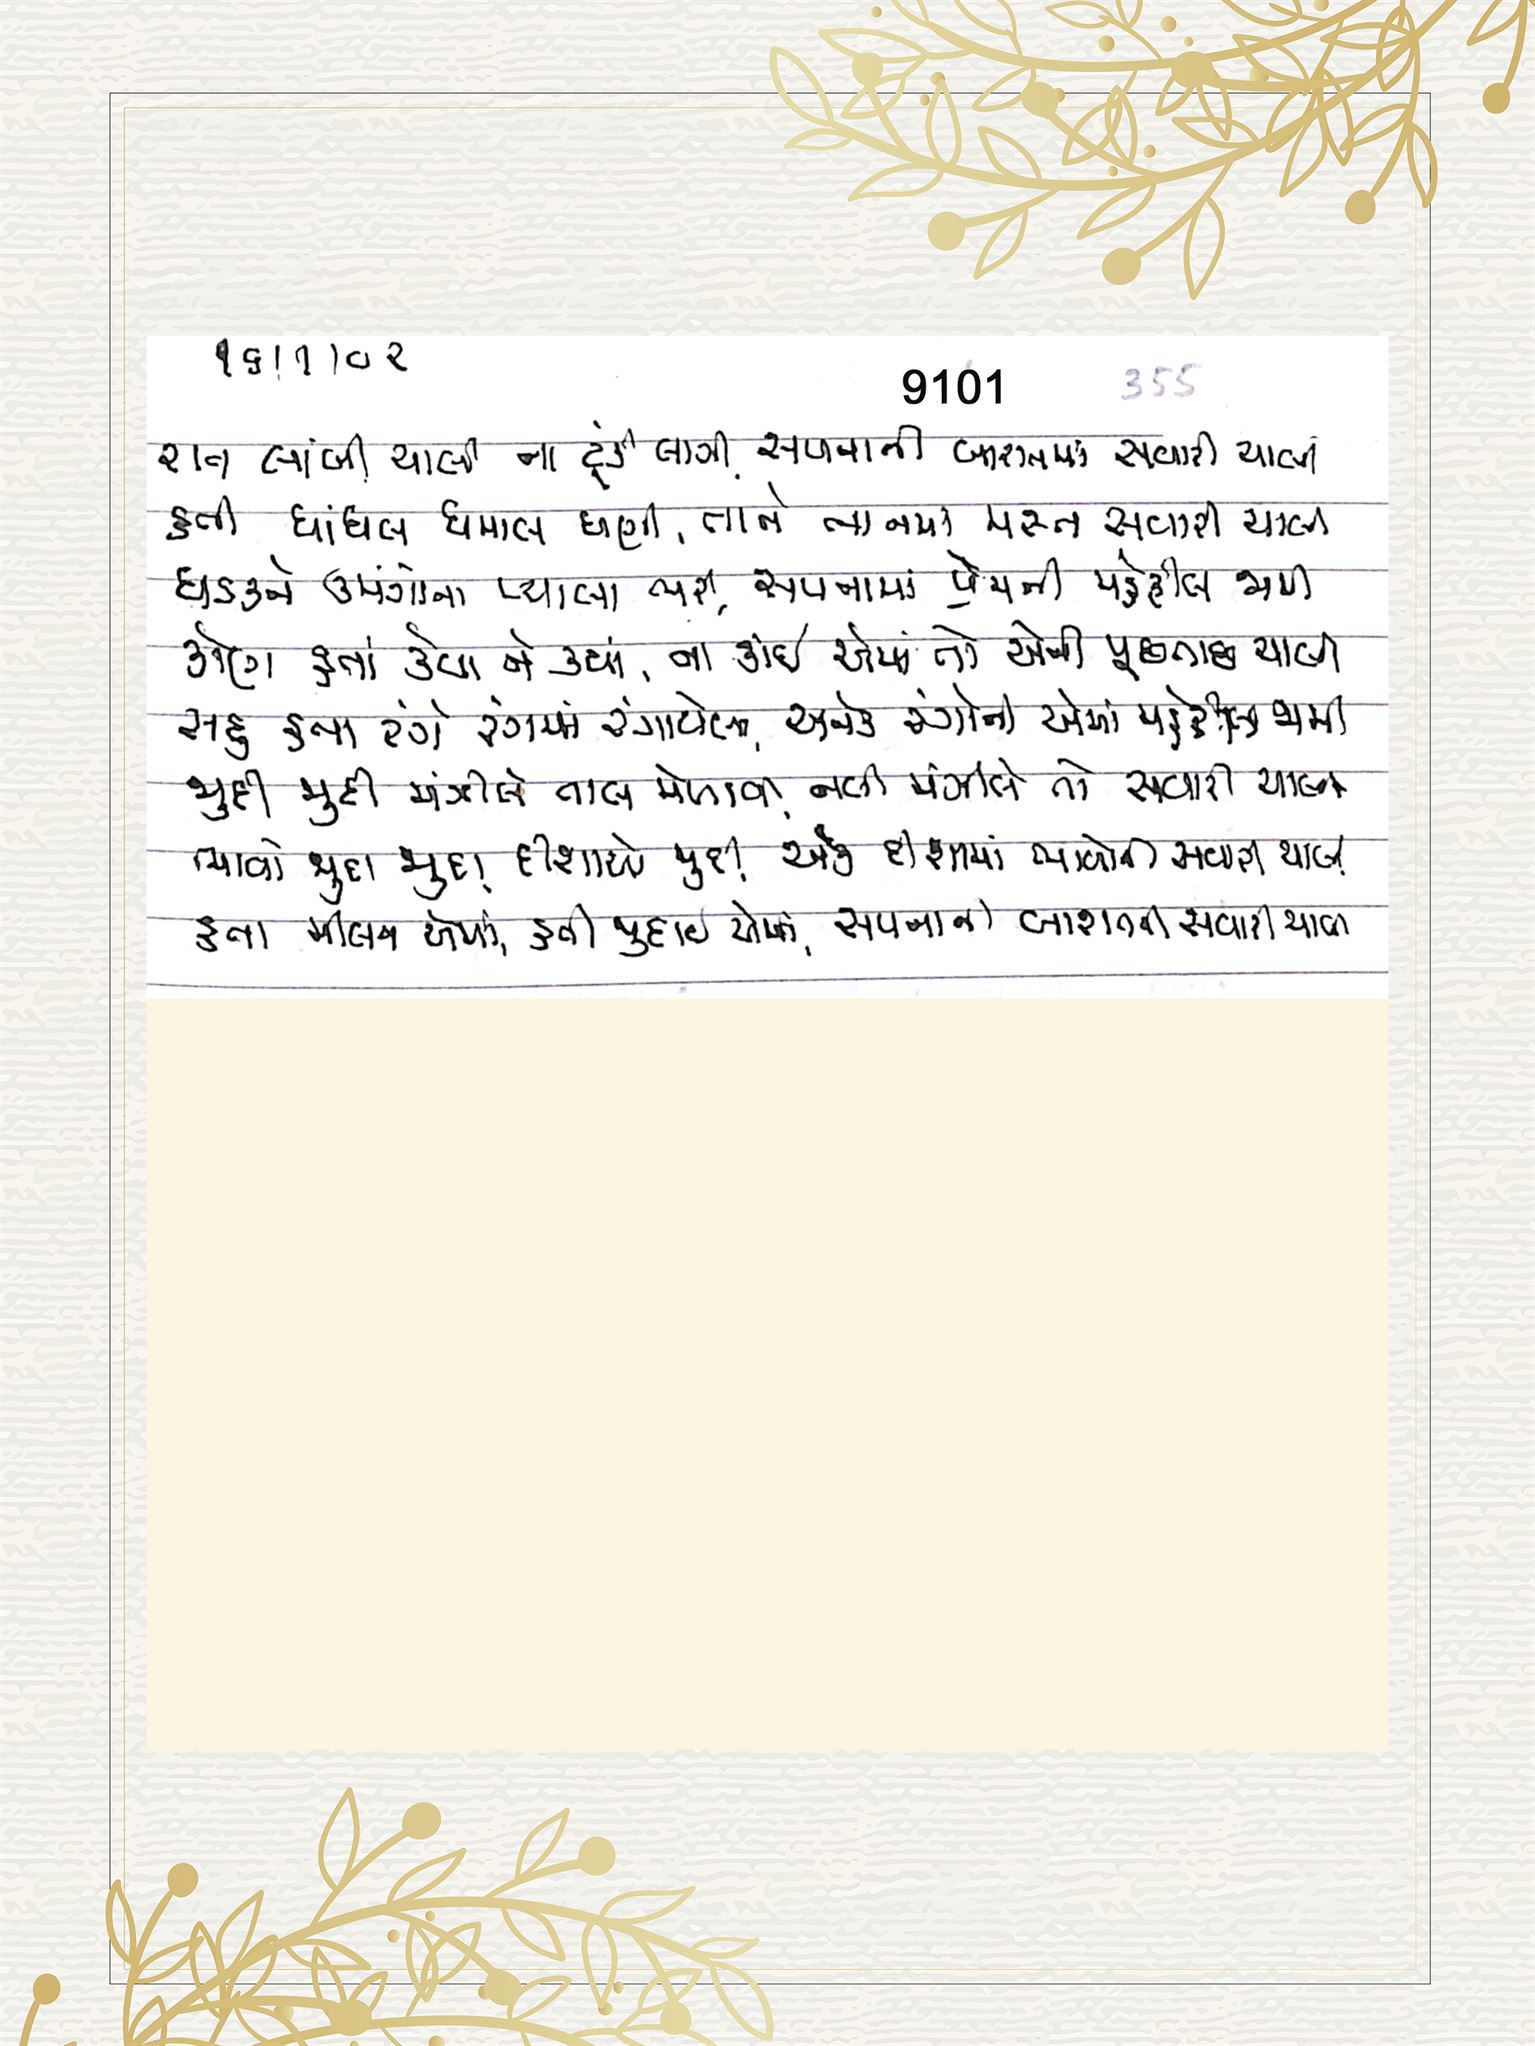 ૧૬/૧/૦૨
9101
355
રાત લાંબી ચાલી ના ટૂંકી લાગી, સપનાની બારાતમાં સવારી ચાલી
હતી ધાંધલ ધમાલ ઘણી, તાને તાનમાં મસ્ત સવારી ચાલી
ઘડકને ઉમંગોના પ્યાલા ભરી, સપનામાં પ્રેમની મહેફીલ જામી
કોણ હતાં કેવા ને ક્યાં, ના કોઈ એમાં તો એની પૂછતાછ ચાલી
સહુ હતા રંગે રંગમાં રંગાયેલા, અનેક રંગોની એમાં મહેફીલ જામી
જુદી જુદી મંઝીલે તાલ મેળાવી, નવી મંઝીલે તો સવારી ચાલી
ભાવો જુદા જુદા, દીશાઓ જુદી, એક દીશામાં ભાવોની સવારી ચાલી
હતા મીલન એમાં, હતી જુદાઇ એમાં, સપનાની બારાતની સવારી ચાલી